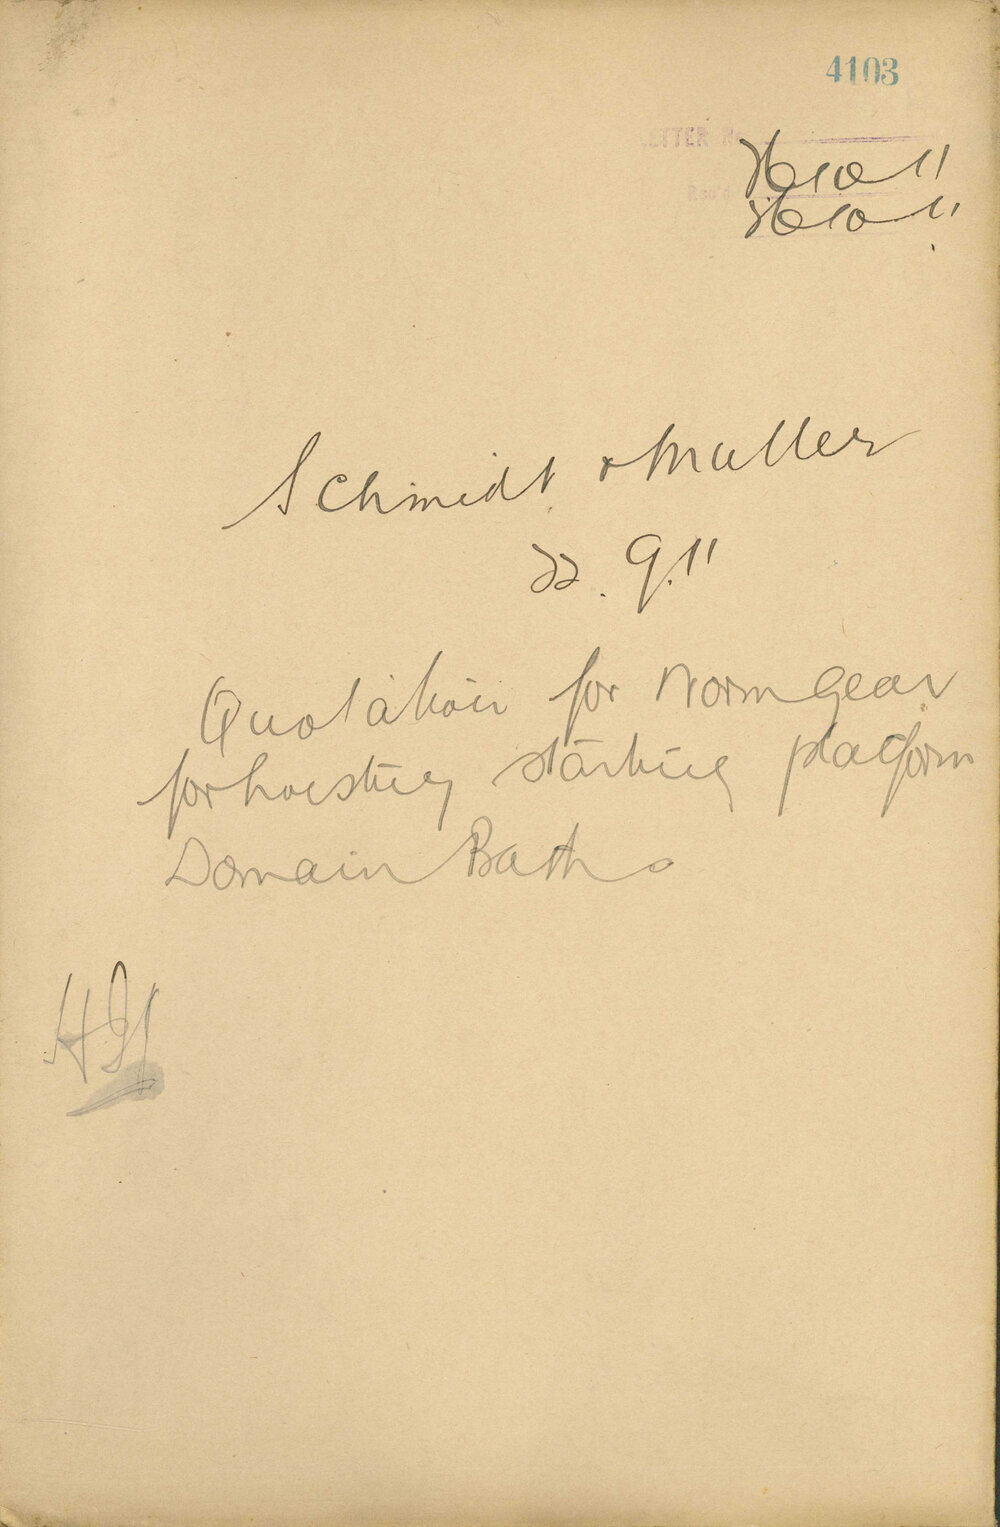 4103
LETTER No.
26 10 11
Rec'd
26 10 11
Schmidt & Muller
22.9.11
Quotation for Worm Gear
for hoisting starting platform
Domain Baths